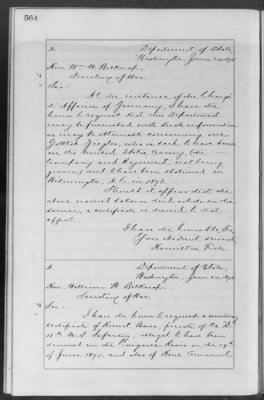 564
Department of State,
Washington, June
Hon. Wm W. Belknap,
Secretary of War.
Sir:
At the instance of the Chargé
d'Affaires of Germany, I have the
honor to request that this Department
may be furnished with such information
as may be obtainable concerning one
Gottlob Ziegler, who is said to have been
in the United States Army, (the
Company and Regiment not being
given) and to have been stationed in
Wilmington, in 1873.
Should it appear that the
above named soldier died while in the
service, a certificate is desired to that
effect.
I have the honor to be, Sir,
Your obedient servant
Hamilton Fish.
Department of State,
Washington, June
Hon. William W. Belknap,
Secretary of War.
Sir:
I have the honor to request a
certificate of private of Co.
U.S. Infantry, alleged to have been
drowned in the River on the
of June and also of